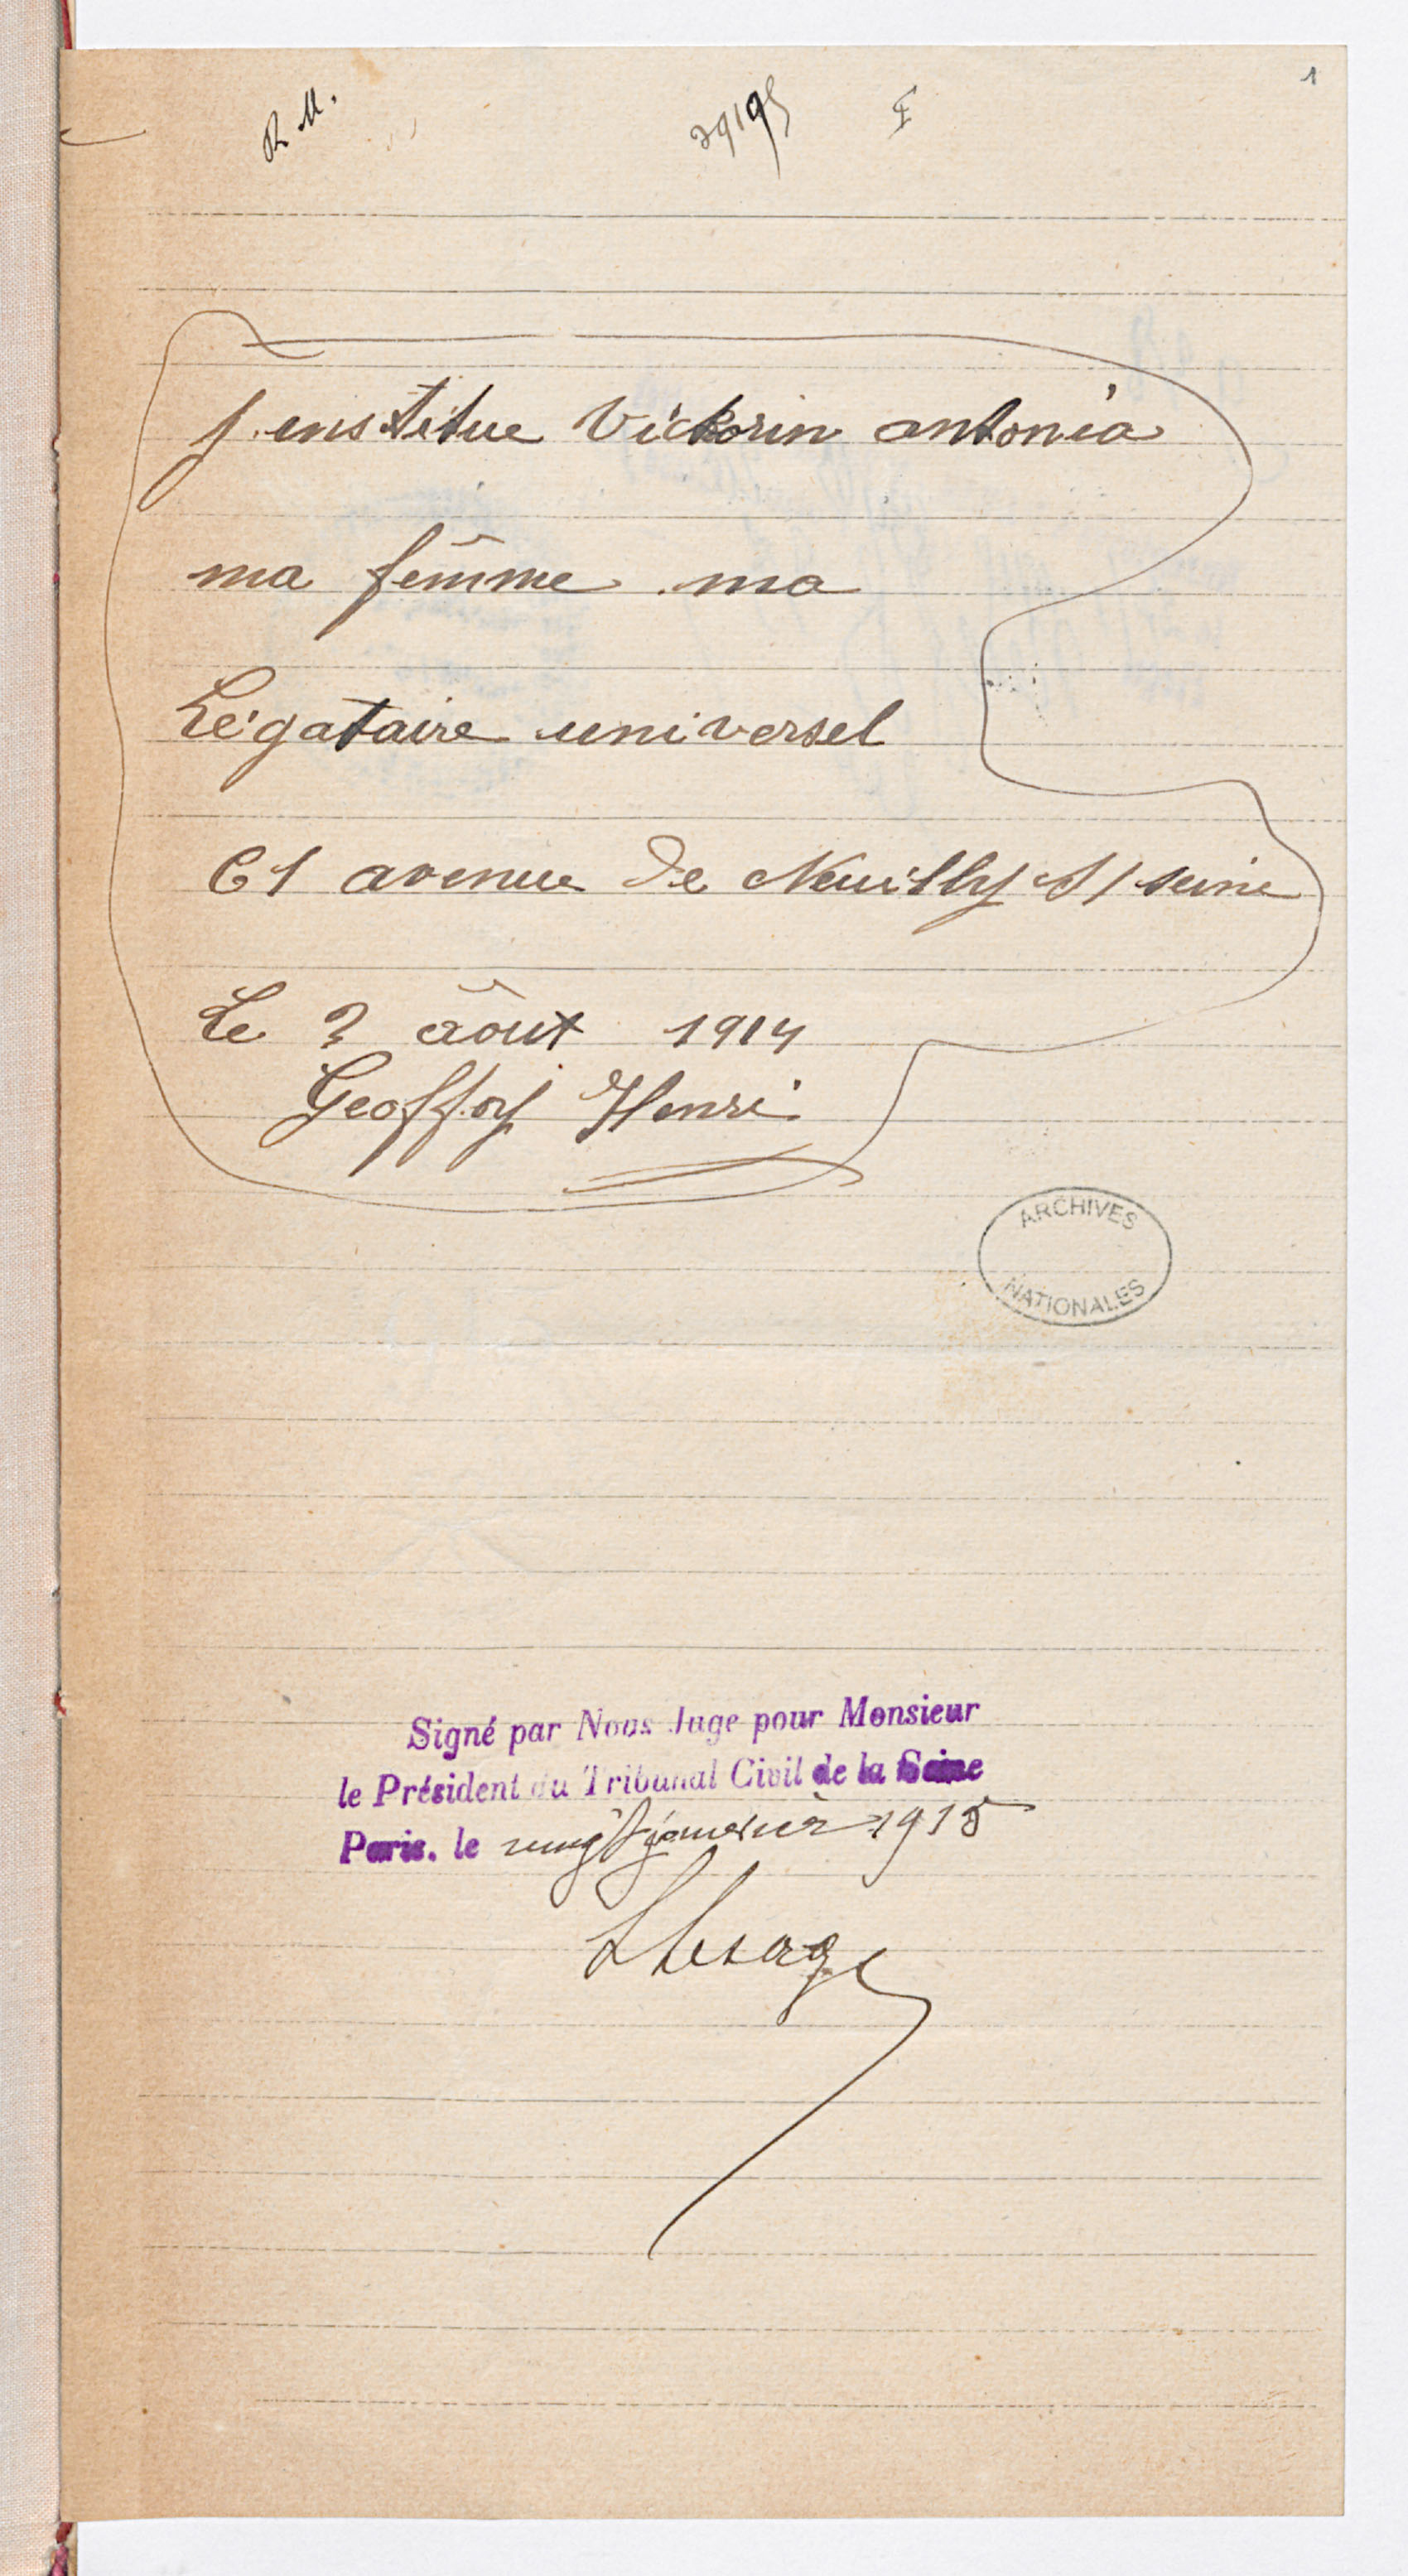 1
R. M.
29195
J. enstitue Victorin antonia
ma fêmme ma
Légataire universel
61 avenue de Neuilly S/ seine
Le 2 âout 1914
Geoffroy Henri
ARCHIVES
NATIONALES
Signé par Nous Juge pour Monsieur
le Président du Tribunal Civil de la Seine
Paris. le vingt janvier 1915